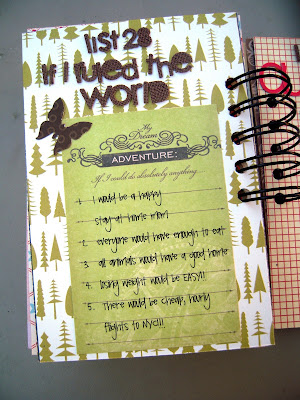 list 28
If I ruled the
world
My
Dream
ADVENTURE:
If I could do absolutely anything...
1. I would be a happy
stay at home mom!
2. everyone would have enough to eat
3. all animals would have a good home
4. losing weight would be EASY!!
5. There would be cheap, hourly
flights to NYC!!!